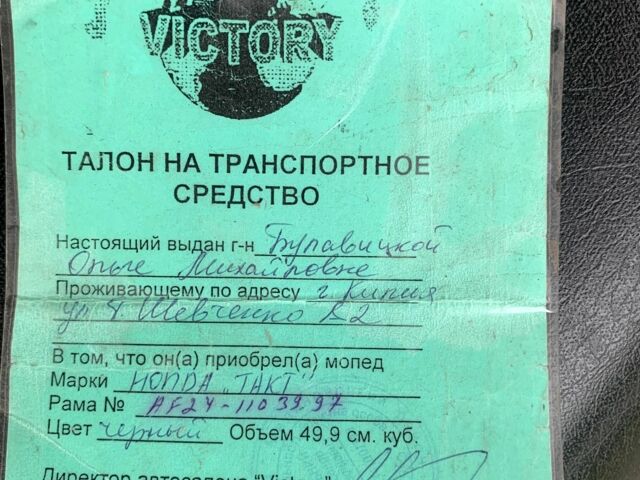 VICTORY
ТАЛОН НА ТРАНСПОРТНОЕ
СРЕДСТВО
Настоящий выдан г-н Булавицкой
Ользе Михайловне
Проживающему по адресу г.
ул Т. Шевченко
В том, что он(а) приобрел(а) мопед
Марки HONDA "TAKT"
Рама № AF24-1103997
Цвет черный Объем 49,9 см. куб.
Директор автосалона "Victory"